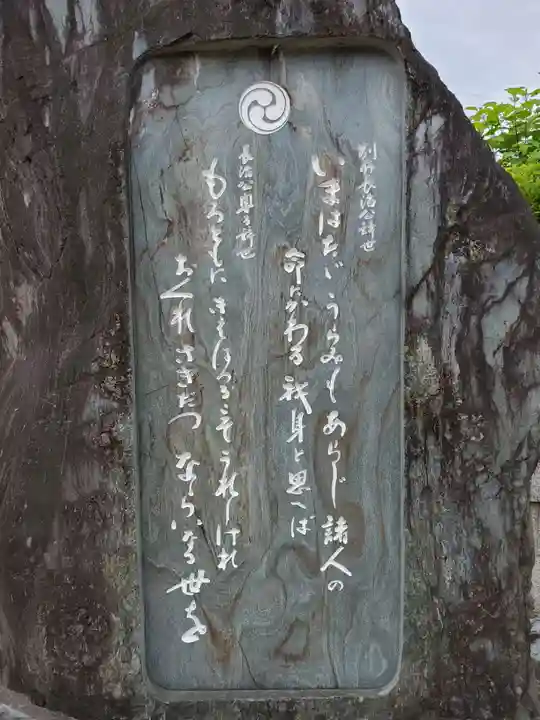 別所長治公辞世
いまはただうらみもあらじ諸人の
命にかわる我身と思へば
長治公奥方辞世
もろともにきえはつるこそうれしけれ
おくれさきだつならいなる世を